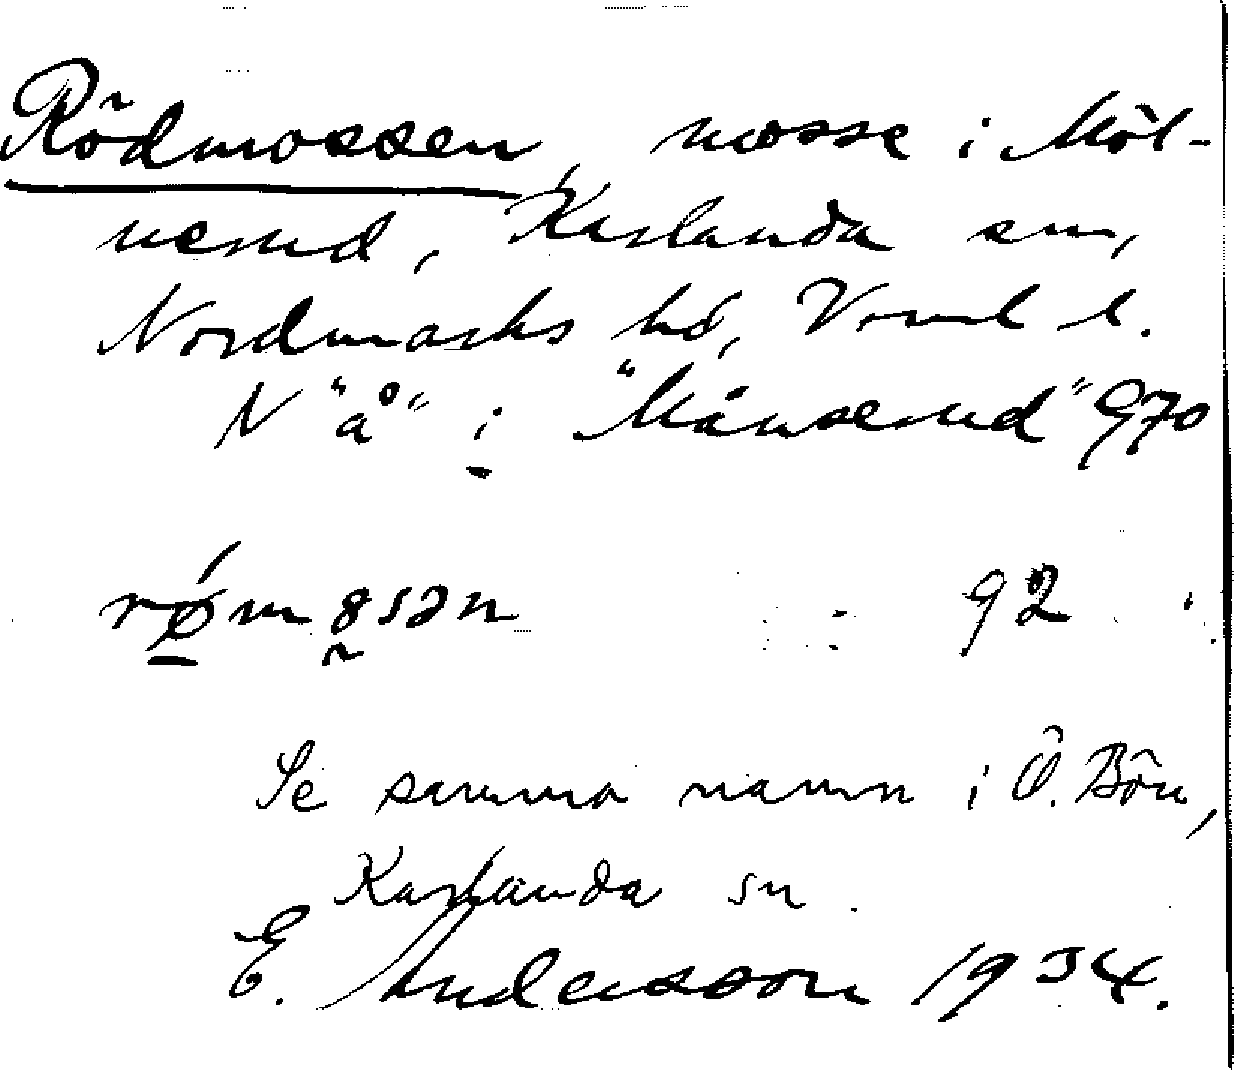 Rödmossen, mosse i Möl-
nerud, Karlanda sn,
Nordmarks hd, Vrml l.
N "å" i "Månserud" G70
Se samma namn i Ö. Bön,
Karlanda sn.
E. Andersson 1934.